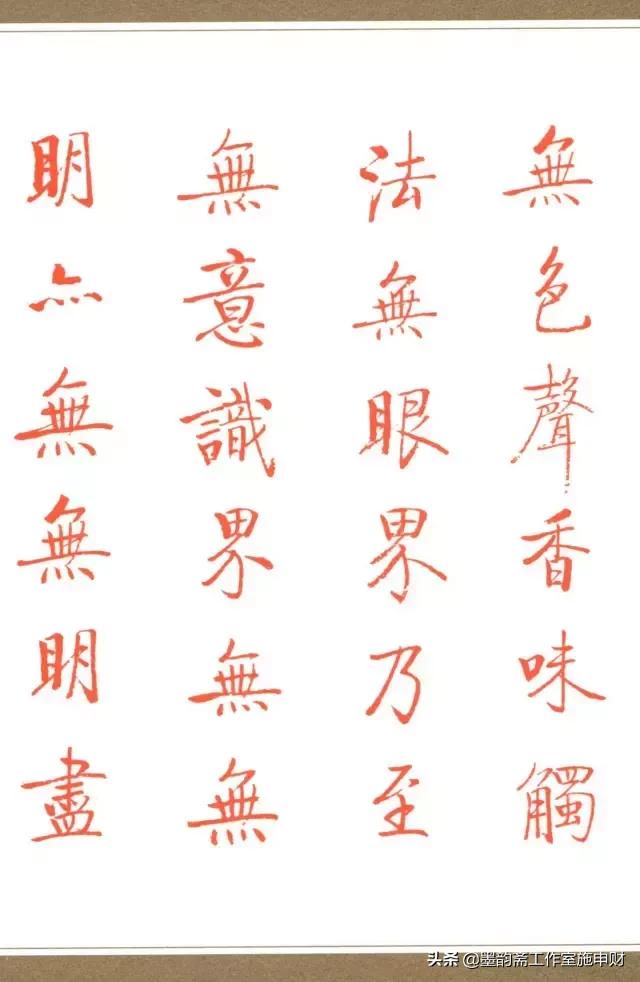 無色聲香味觸
法無眼界乃至
無意識界無無
明亦無無明盡
头条 @墨韵斋工作室施申财